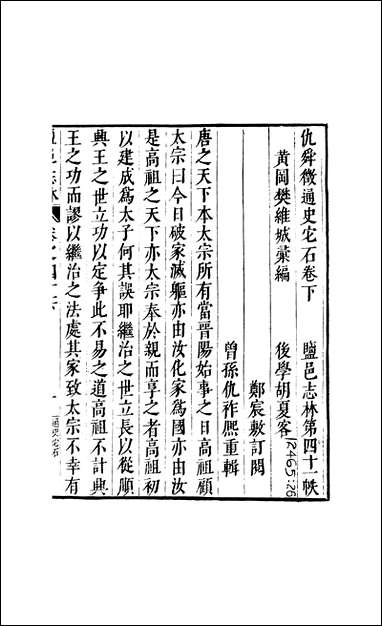 仇舜徵通史它石卷下　鹽邑志林第四十一帙
黃岡樊維城彙編　後學胡夏客
鄭宸敷訂閱
曾孫仇祚熙重輯
唐之天下本太宗所有當晉陽始事之日高祖顧
太宗曰今日破家滅軀亦由汝化家爲國亦由汝
是高祖之天下亦太宗奉於親而享之者高祖初
以建成爲太子何其誤耶繼治之世立長以從順
興王之世立功以定爭此不易之道高祖不計興
王之功而謬以繼治之法處其家致太宗不幸有
12465:26